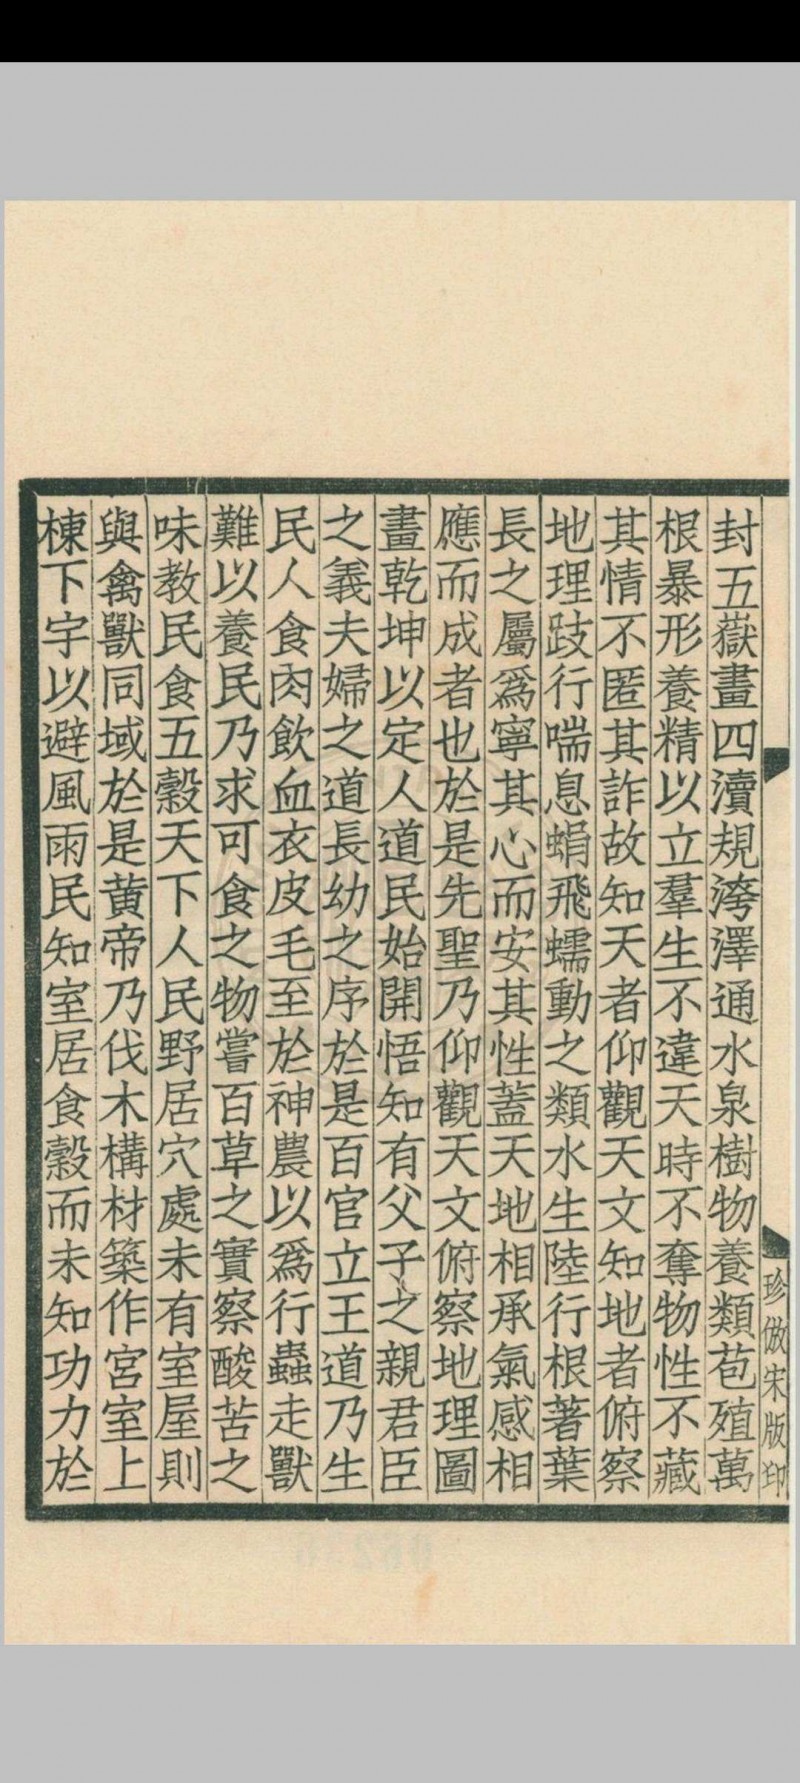 封五嶽畫四瀆規洿澤通水泉樹物養類苞殖萬
根暴形養精以立羣生不違天時不奪物性不藏
其情不匿其詐故知天者仰觀天文知地者俯察
地理跂行喘息蜎飛蠕動之類水生陸行根著葉
長之屬爲寧其心而安其性蓋天地相承氣感相
應而成者也於是先聖乃仰觀天文俯察地理圖
畫乾坤以定人道民始開悟知有父子之親君臣
之義夫婦之道長幼之序於是百官立王道乃生
民人食肉飲血衣皮毛至於神農以爲行蟲走獸
難以養民乃求可食之物嘗百草之實察酸苦之
味教民食五穀天下人民野居穴處未有室屋則
與禽獸同域於是黃帝乃伐木構材築作宮室上
棟下宇以避風雨民知室居食穀而未知功力於
珍倣宋版印